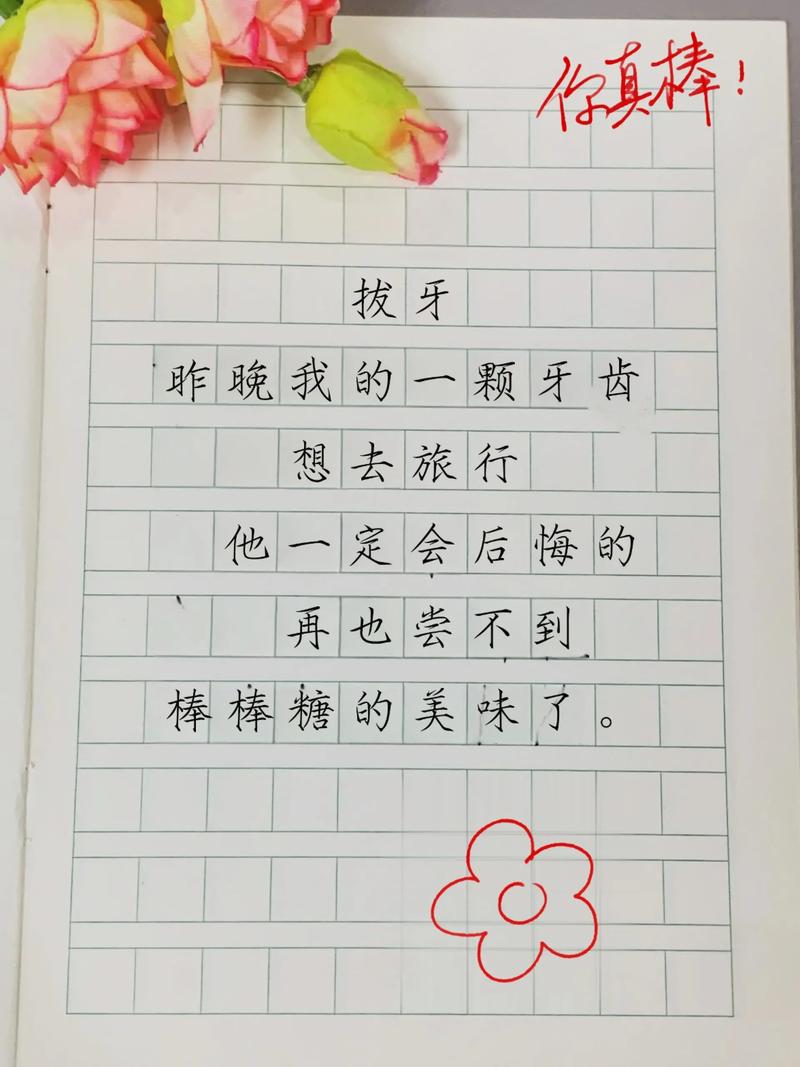 你真棒！
拔牙
昨晚我的一颗牙齿
想去旅行
他一定会后悔的
再也尝不到
棒棒糖的美味了。